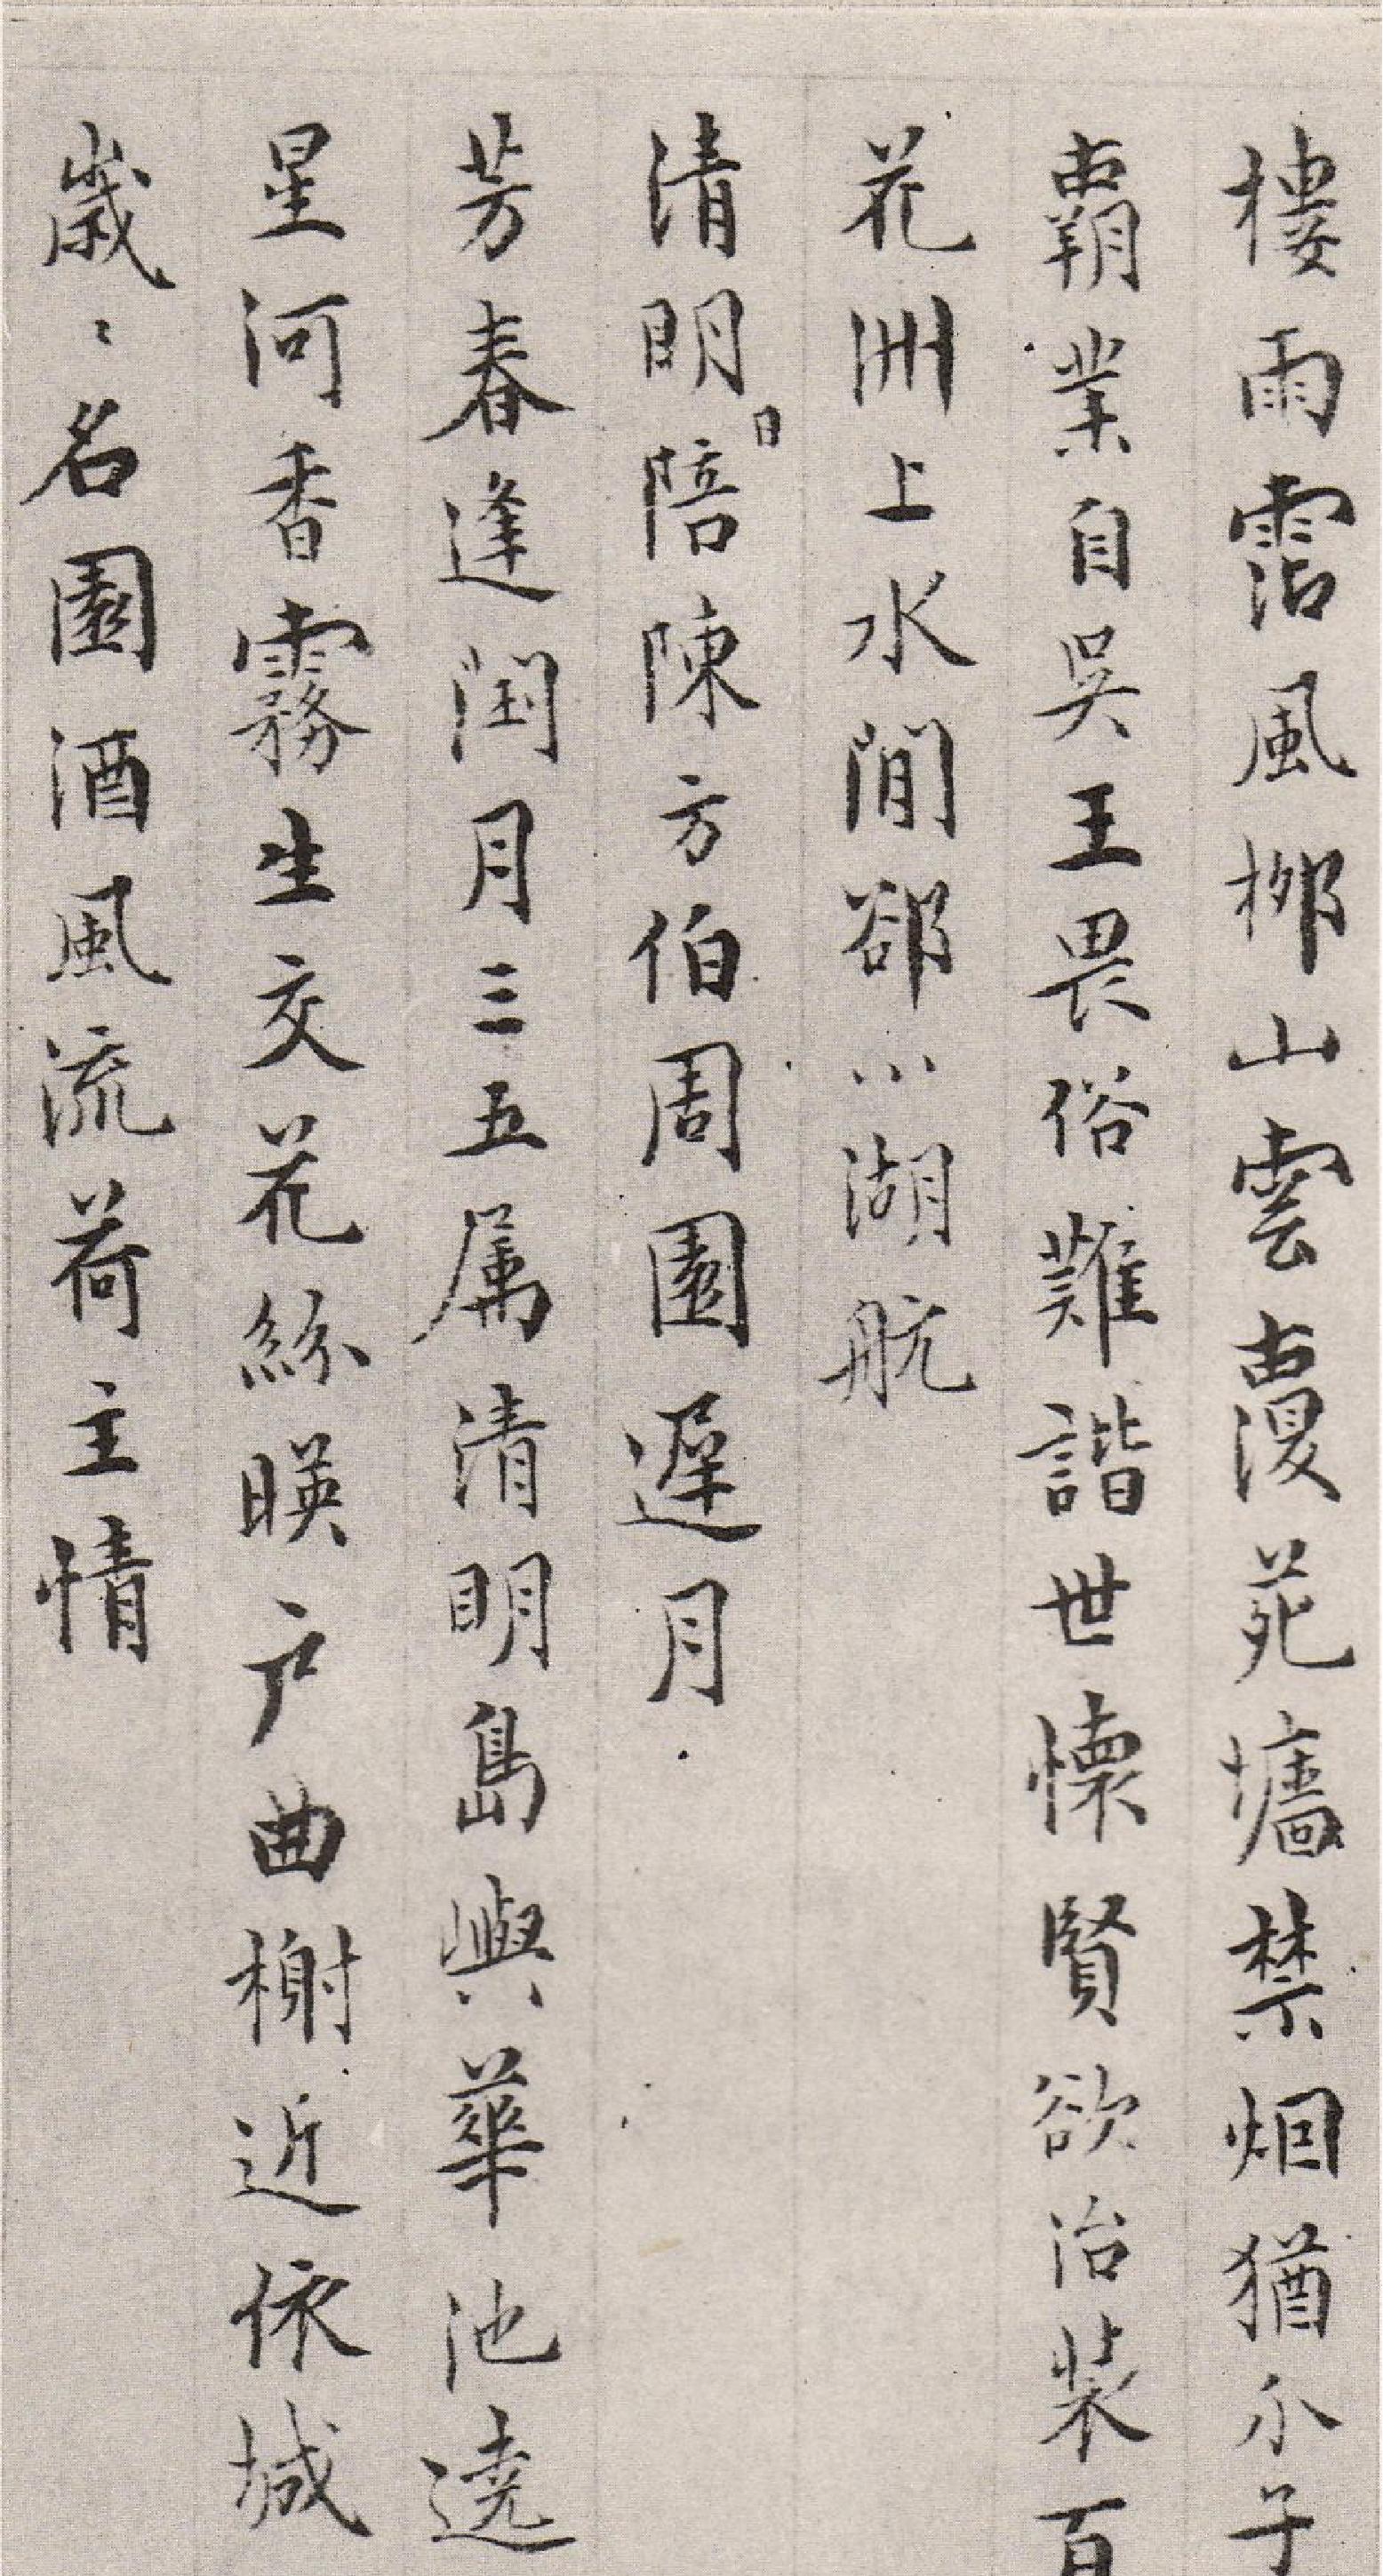 樓雨霑風柳山雲覆苑墻禁烟猶尒子
覇業自吳王畏俗難諧世懐賢欲治装百
花洲上水閒郤小湖航
清明日陪陳方伯周園遲月
芳春逢閏月三五属清明島嶼華池遶
星河香霧生交花絲暎户曲榭近依城
歲〻名園酒風流荷主情